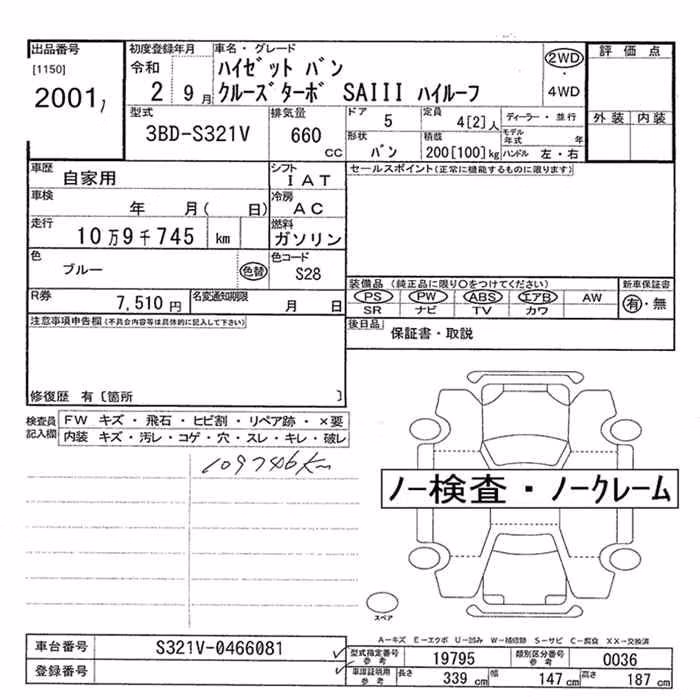 出品番号 初度登録年月 車名・グレード 2WD 評価点
[1150] 令和 ハイゼット バン ・
2001 2 9月 クルーズターボ SAIII ハイルーフ 4WD
型式 排気量 ドア 5 定員 4[2]人 ディーラー・並行 外装 内装
3BD-S321V 660 cc 形状 バン 積載 200[100]kg モデル年式 年 ハンドル 左・右
車歴 自家用 シフト IAT セールスポイント(正常に機能するものに限ります)
車検 年 月( 日) 冷房 AC
走行 10万9千745 km 燃料 ガソリン
色 ブルー 色替 色コード S28
装備品(純正品に限り○をつけてください) 新車保証書
PS PW ABS エアB AW 有・無
SR ナビ TV カワ
R券 7,510円 名変通知期限 月 日
後日品 保証書・取説
注意事項申告欄(不具合内容等は具体的に記入して下さい)
修復歴 有〔箇所 〕
検査員記入欄 FW キズ・飛石・ヒビ割・リペア跡・×要
内装 キズ・汚レ・コゲ・穴・スレ・キレ・破レ
109746km
ノー検査・ノークレーム
スペア
A-キズ E-エクボ U-凹み W-補修跡 S-サビ C-腐食 XX-交換済
車台番号 S321V-0466081 型式指定番号 参考 19795 類別区分番号 参考 0036
登録番号 車庫証明用 参考 長さ 339cm 幅 147cm 高さ 187cm